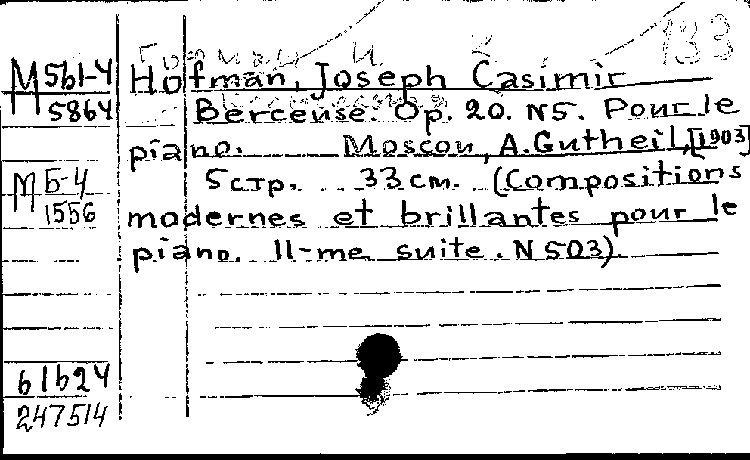 133
М 561-4
5864
Hofman, Joseph Casimir
Berceuse. Op. 20. N5. Pour le
piano. Moscou, A. Gutheil, [1903]
5 стр. 33 cm. (Compositions
modernes et brillantes pour le
piano. II-me suite. N 503).
М Б-4
1556
61624
247514